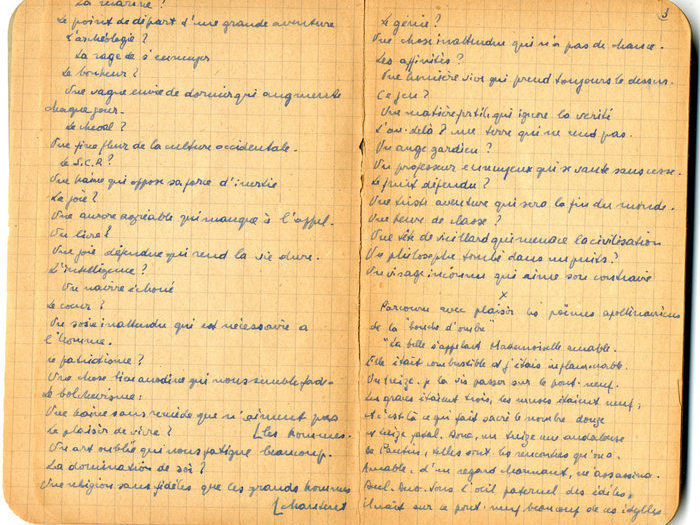 La marine ?
Le point de départ d'une grande aventure
L'archéologie ?
La rage de s'ennuyer
Le bonheur ?
Une vague envie de dormir qui augmente
chaque jour.
Le cheval ?
Une fine fleur de la culture occidentale.
Le S.C.R ?
Une haine qui oppose sa force d'inertie
La joie ?
Une aurore agréable qui manque à l'appel.
Un livre ?
Une joie défendue qui rend la vie dure.
L'intelligence ?
Un navire échoué
Le cœur ?
Un soin inattendu qui est nécessaire à
l'homme.
Le patriotisme ?
Une chose bien anodine qui nous semble fade.
Le bolchevisme :
Une haine sans remède que n'aiment pas
Le plaisir de vivre ? [les hommes.
Un art oublié qui nous fatigue beaucoup.
La domination de soi ?
Une religion sans fidèles que les grands hommes
[chantent
3
Le génie ?
Une chose inattendue qui n'a pas de chance.
Les affinités ?
Une lumière vive qui prend toujours le dessus.
Ce jeu ?
Une matière fertile qui ignore la vérité
L'au-delà ? une terre qui ne rend pas.
Un ange gardien ?
Un professeur ennuyeux qui se vante sans cesse.
Le fruit défendu ?
Une triste aventure qui sera la fin du monde.
Une heure de classe ?
Une tête de vieillard qui menace la civilisation
Un philosophe tombé dans un puits ?
Un visage inconnu qui aime son contraire
x
Parcouru avec plaisir les poèmes apollinariens
de la "bouche d'ombre"
"La belle s'appelait Mademoiselle amable.
Elle était combustible et j'étais inflammable.
Un treize. je la vis passer sur le pont-neuf.
Les grâces étaient trois, les muses étaient neuf,
et c'est là ce qui fait sacré le nombre douze
et treize fatal. Donc, un treize une andalouse
de Pantin, telles sont les rencontres qu'on a.
Amable. d'un regard charmant, m'assassina.
Duel. Duo. Sous l'œil paternel des édiles,
il naît sur le pont-neuf beaucoup de ces idylles